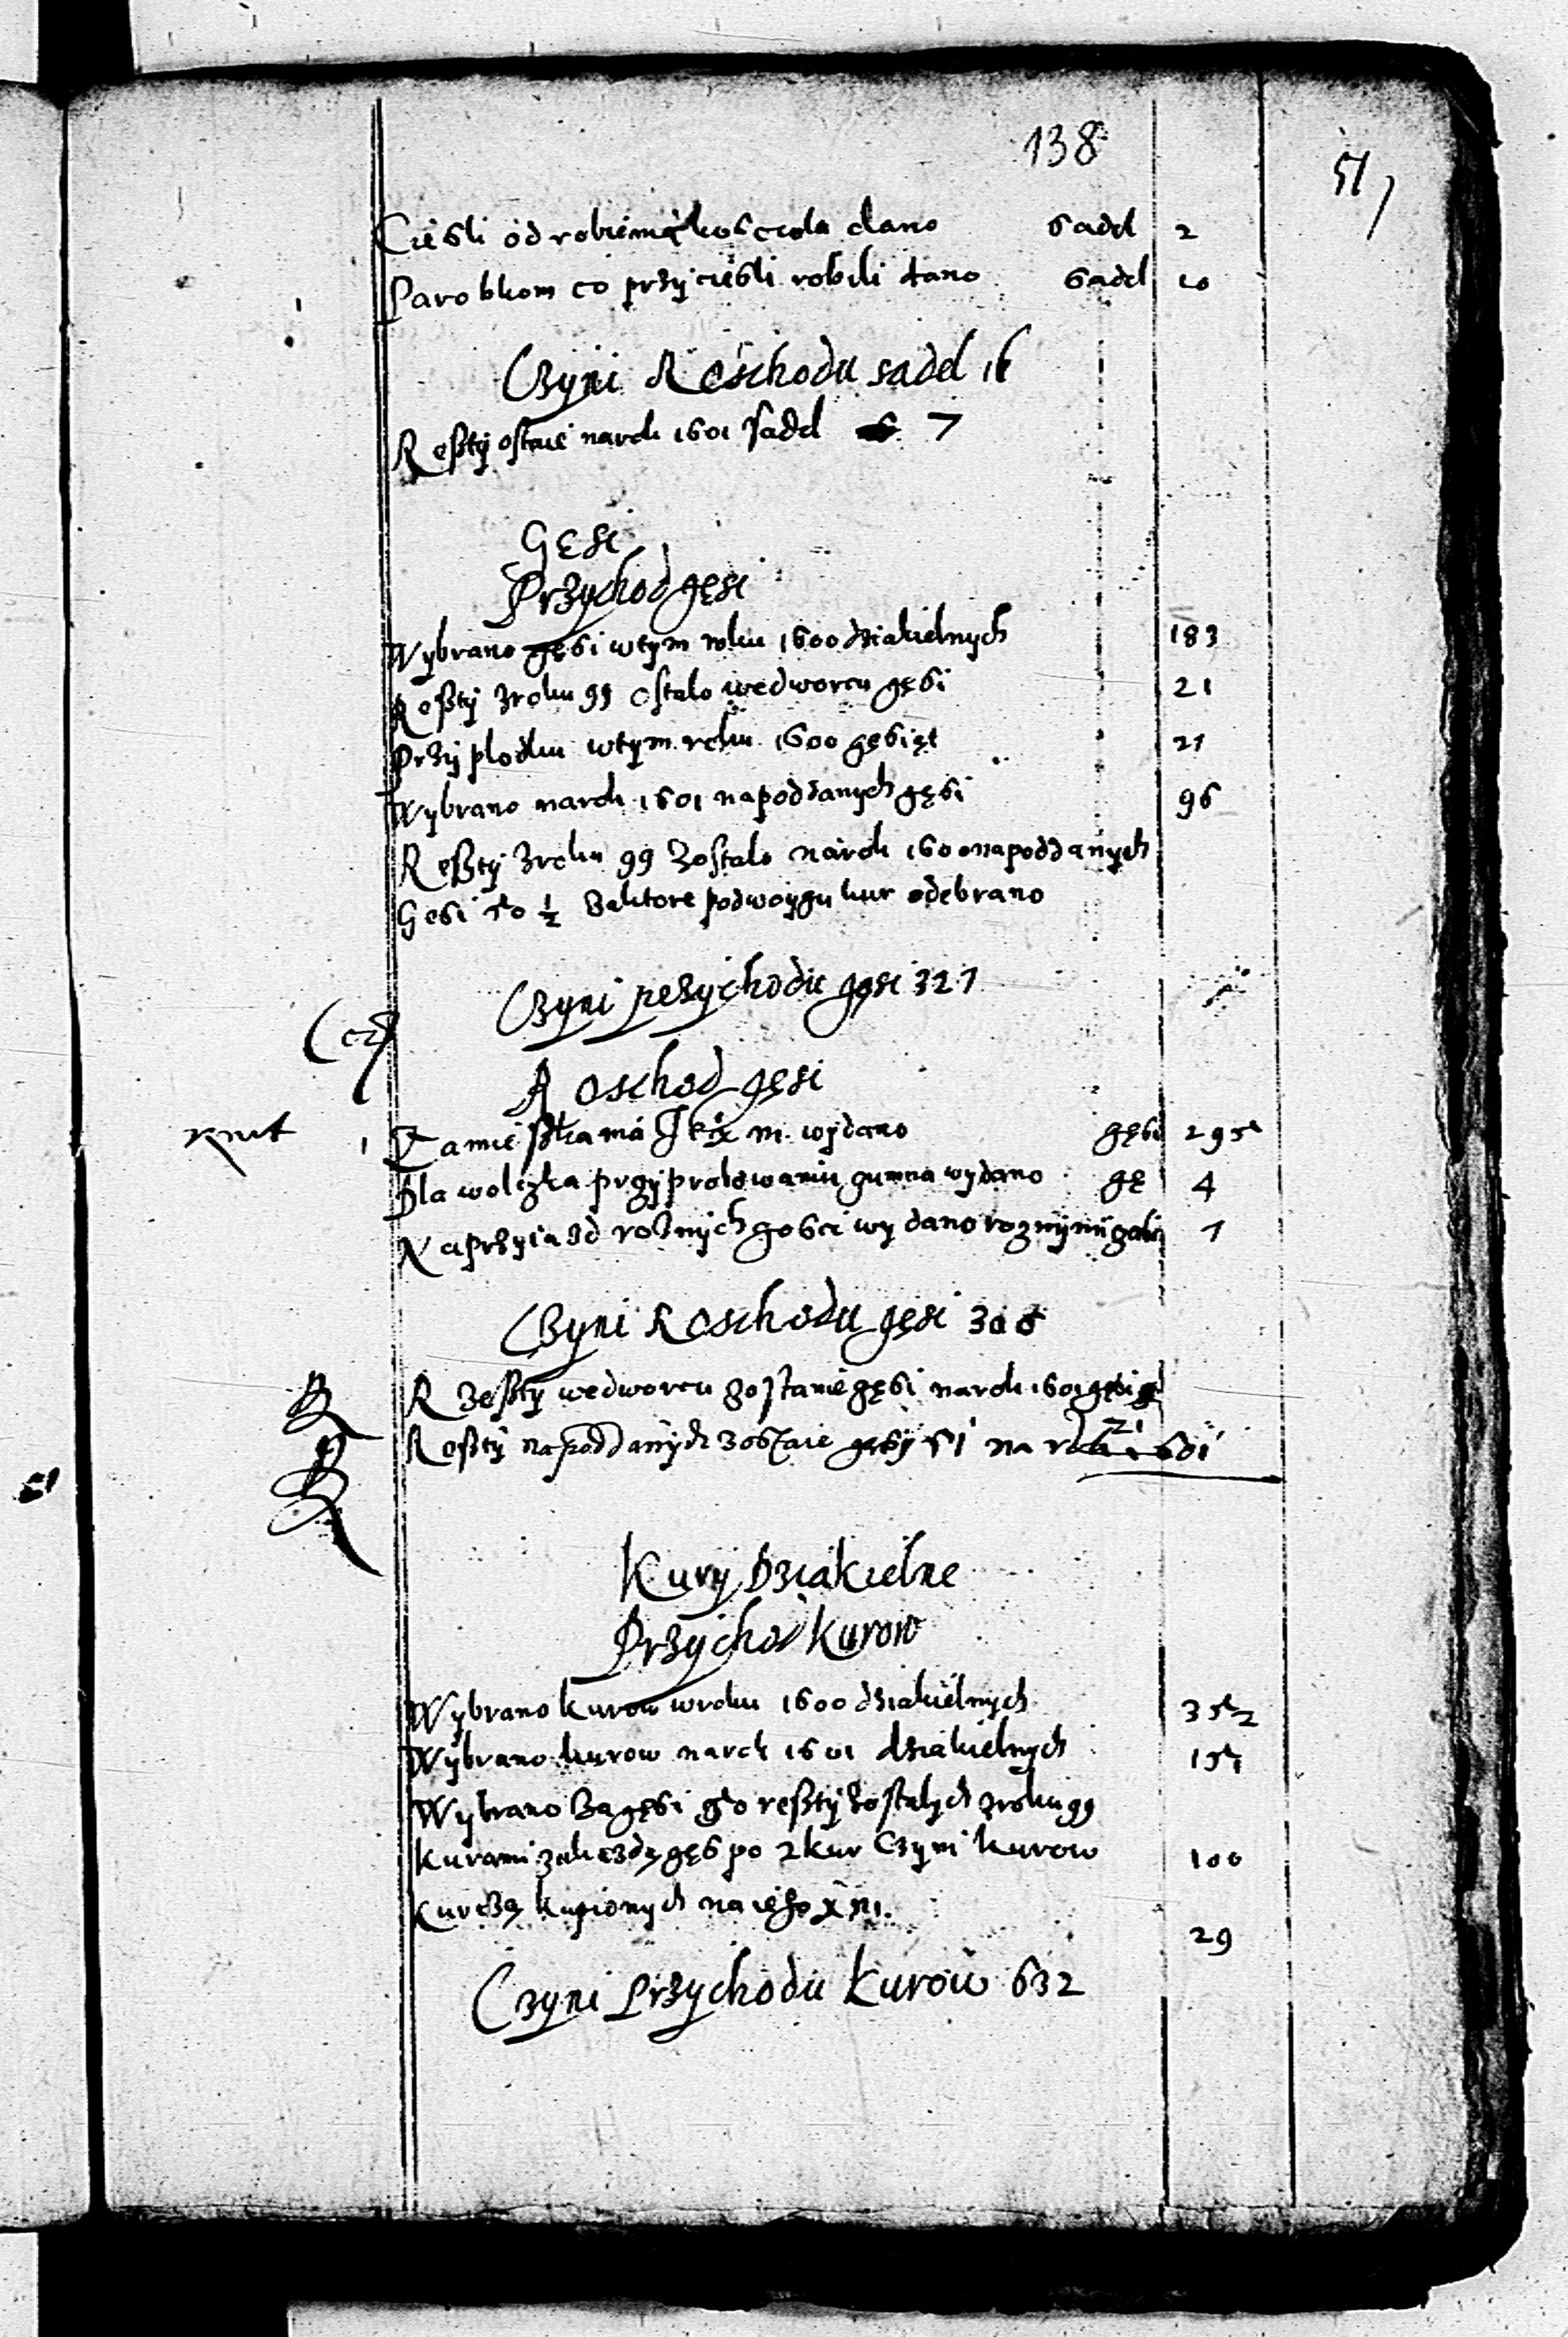 138
51
Cieśli od robienia kosciola dano sadel 2
Parobkom co przy cieśli robili dano sadel 10
Czyni Roschodu sadel 16
Reszty ostaie na rok 1601 sadel 7
Gęsi
Przychod gęsi
Wybrano gęsi w tym roku 1600 dziakielnych 183
Reszty z roku 99 ostalo we dworcu gęsi 21
Przyplodku w tym roku 1600 gęsiąt 21
Wybrano na rok 1601 na poddanych gęsi 96
Reszty z roku 99 zostalo na rok 1600 na poddanych
Gęsi 50 ½ za ktore po dwoygu kur odebrano
Czyni przychodu gęsi 321
Roschod gęsi
Kwit
Za mieszkania J k x m. wydano gęsi 295
Dla wolczka przy probowaniu gumna wydano gę 4
Na przyiazd roznych gosci wydano roznymi 1
Czyni Roschodu gęsi 300
Rzeszty we dworcu zostanie gęsi na rok 1601 gęsi
21
Reszty na poddanych zostaie gęsy 51 na rok 1601
Kury Dziakielne
Przychod Kurow
Wybrano kurow w roku 1600 dziakielnych 352
Wybrano kurow na rok 1601 dziakielnych 151
Wybrano za gęsi 50 reszty zostalych z roku 99
kurami za kezdą gęs po 2 kur Czyni kurow 100
Kurcząt kupionych na iego x m.
29
Czyni Przychodu Kurow 632